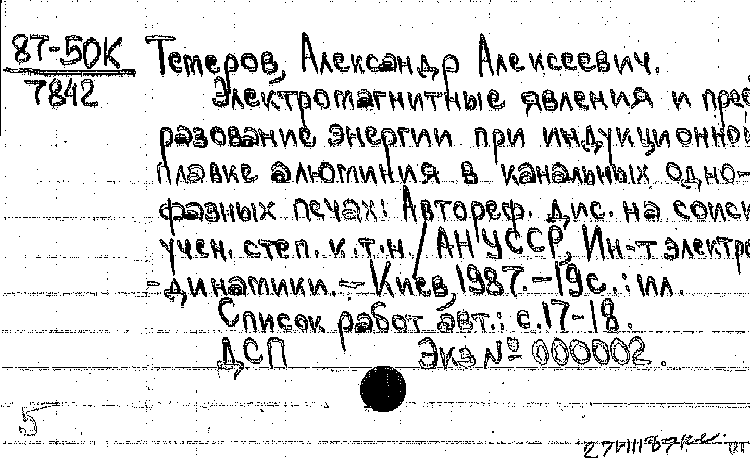 87-50К Тетеров, Александр Алексеевич.
7842
Электромагнитные явления и прео
разование энергии при индукционной
плавке алюминия в канальных одно-
фазных печах: Автореф. дис. на соиск
учен. степ. к.т.н. / АН УССР, Ин-т электро
-динамики. — Киев, 1987. — 19с. : ил.
Список работ авт.: с. 17-18.
ДСП Экз № 000002.
5